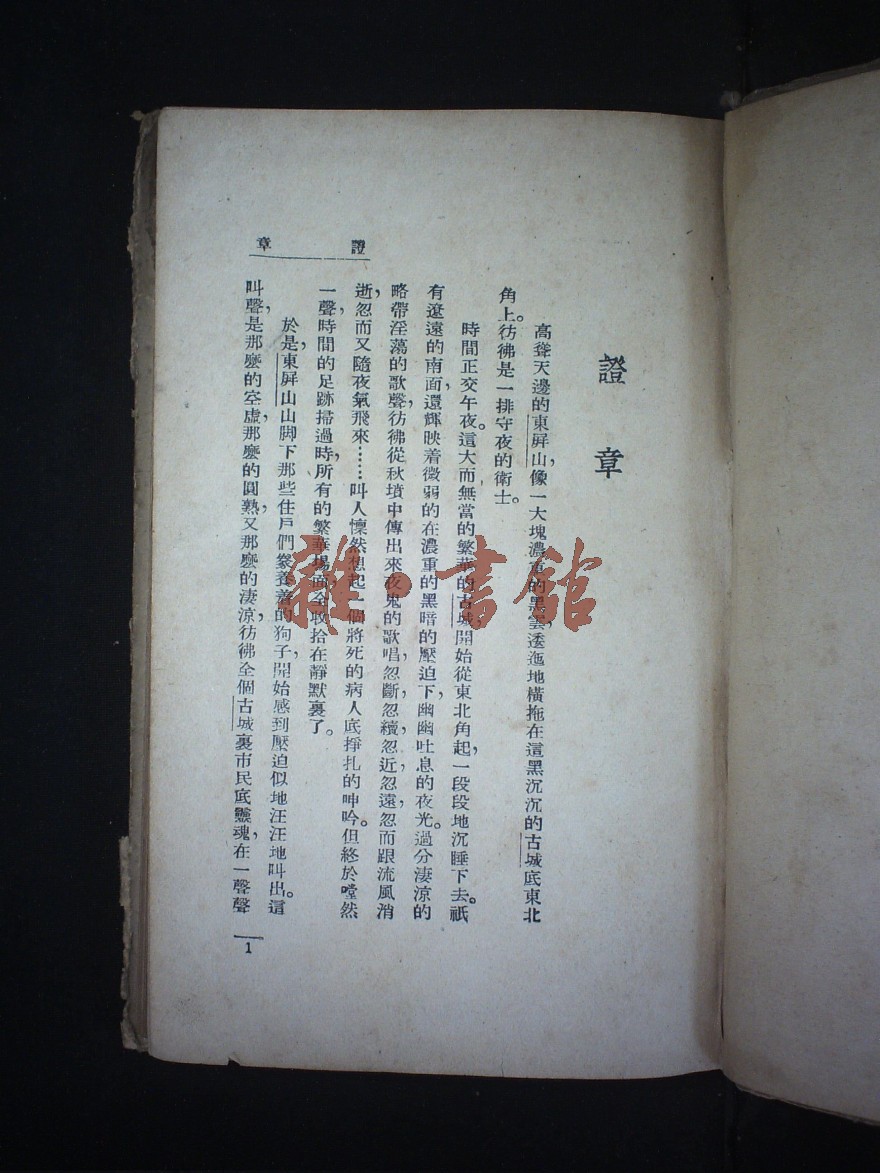 證章
證章
高聳天邊的東屛山,像一大塊濃重的黑雲,逶迤地橫拖在這黑沉沉的古城底東北
角上。彷彿是一排守夜的衛士。
時間正交午夜。這大而無當的繁華的古城,開始從東北角起,一段段地沉睡下去。祇
有遼遠的南面,還輝映着微弱的在濃重的黑暗的壓迫下,幽幽吐息的夜光。過分淒涼的
略帶淫蕩的歌聲,彷彿從秋墳中傳出來夜鬼的歌唱,忽斷,忽續,忽近,忽遠,忽而跟流風消
逝,忽而又隨夜氣飛來……叫人懍然想起一個將死的病人底掙扎的呻吟。但終於噹然
一聲,時間的足跡掃過時,所有的繁華場面全收拾在靜默裏了。
於是,東屛山山脚下那些住戶們豢養着的狗子,開始感到壓迫似地汪汪地叫出。這
叫聲,是那麼的空虛,那麼的圓熟,又那麼的淒涼,彷彿全個古城裏市民底靈魂,在一聲聲
1
雜·書館